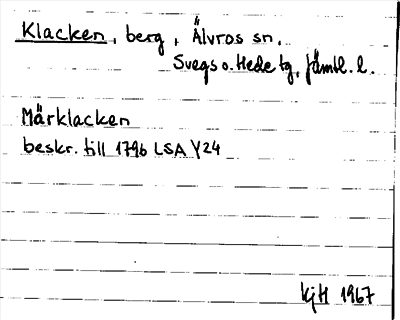 Klacken, berg, Älvros sn,
Svegs o. Hede tg, Jämtl. l.
Märklacken
beskr. till 1796 LSA Y24
KjH 1967